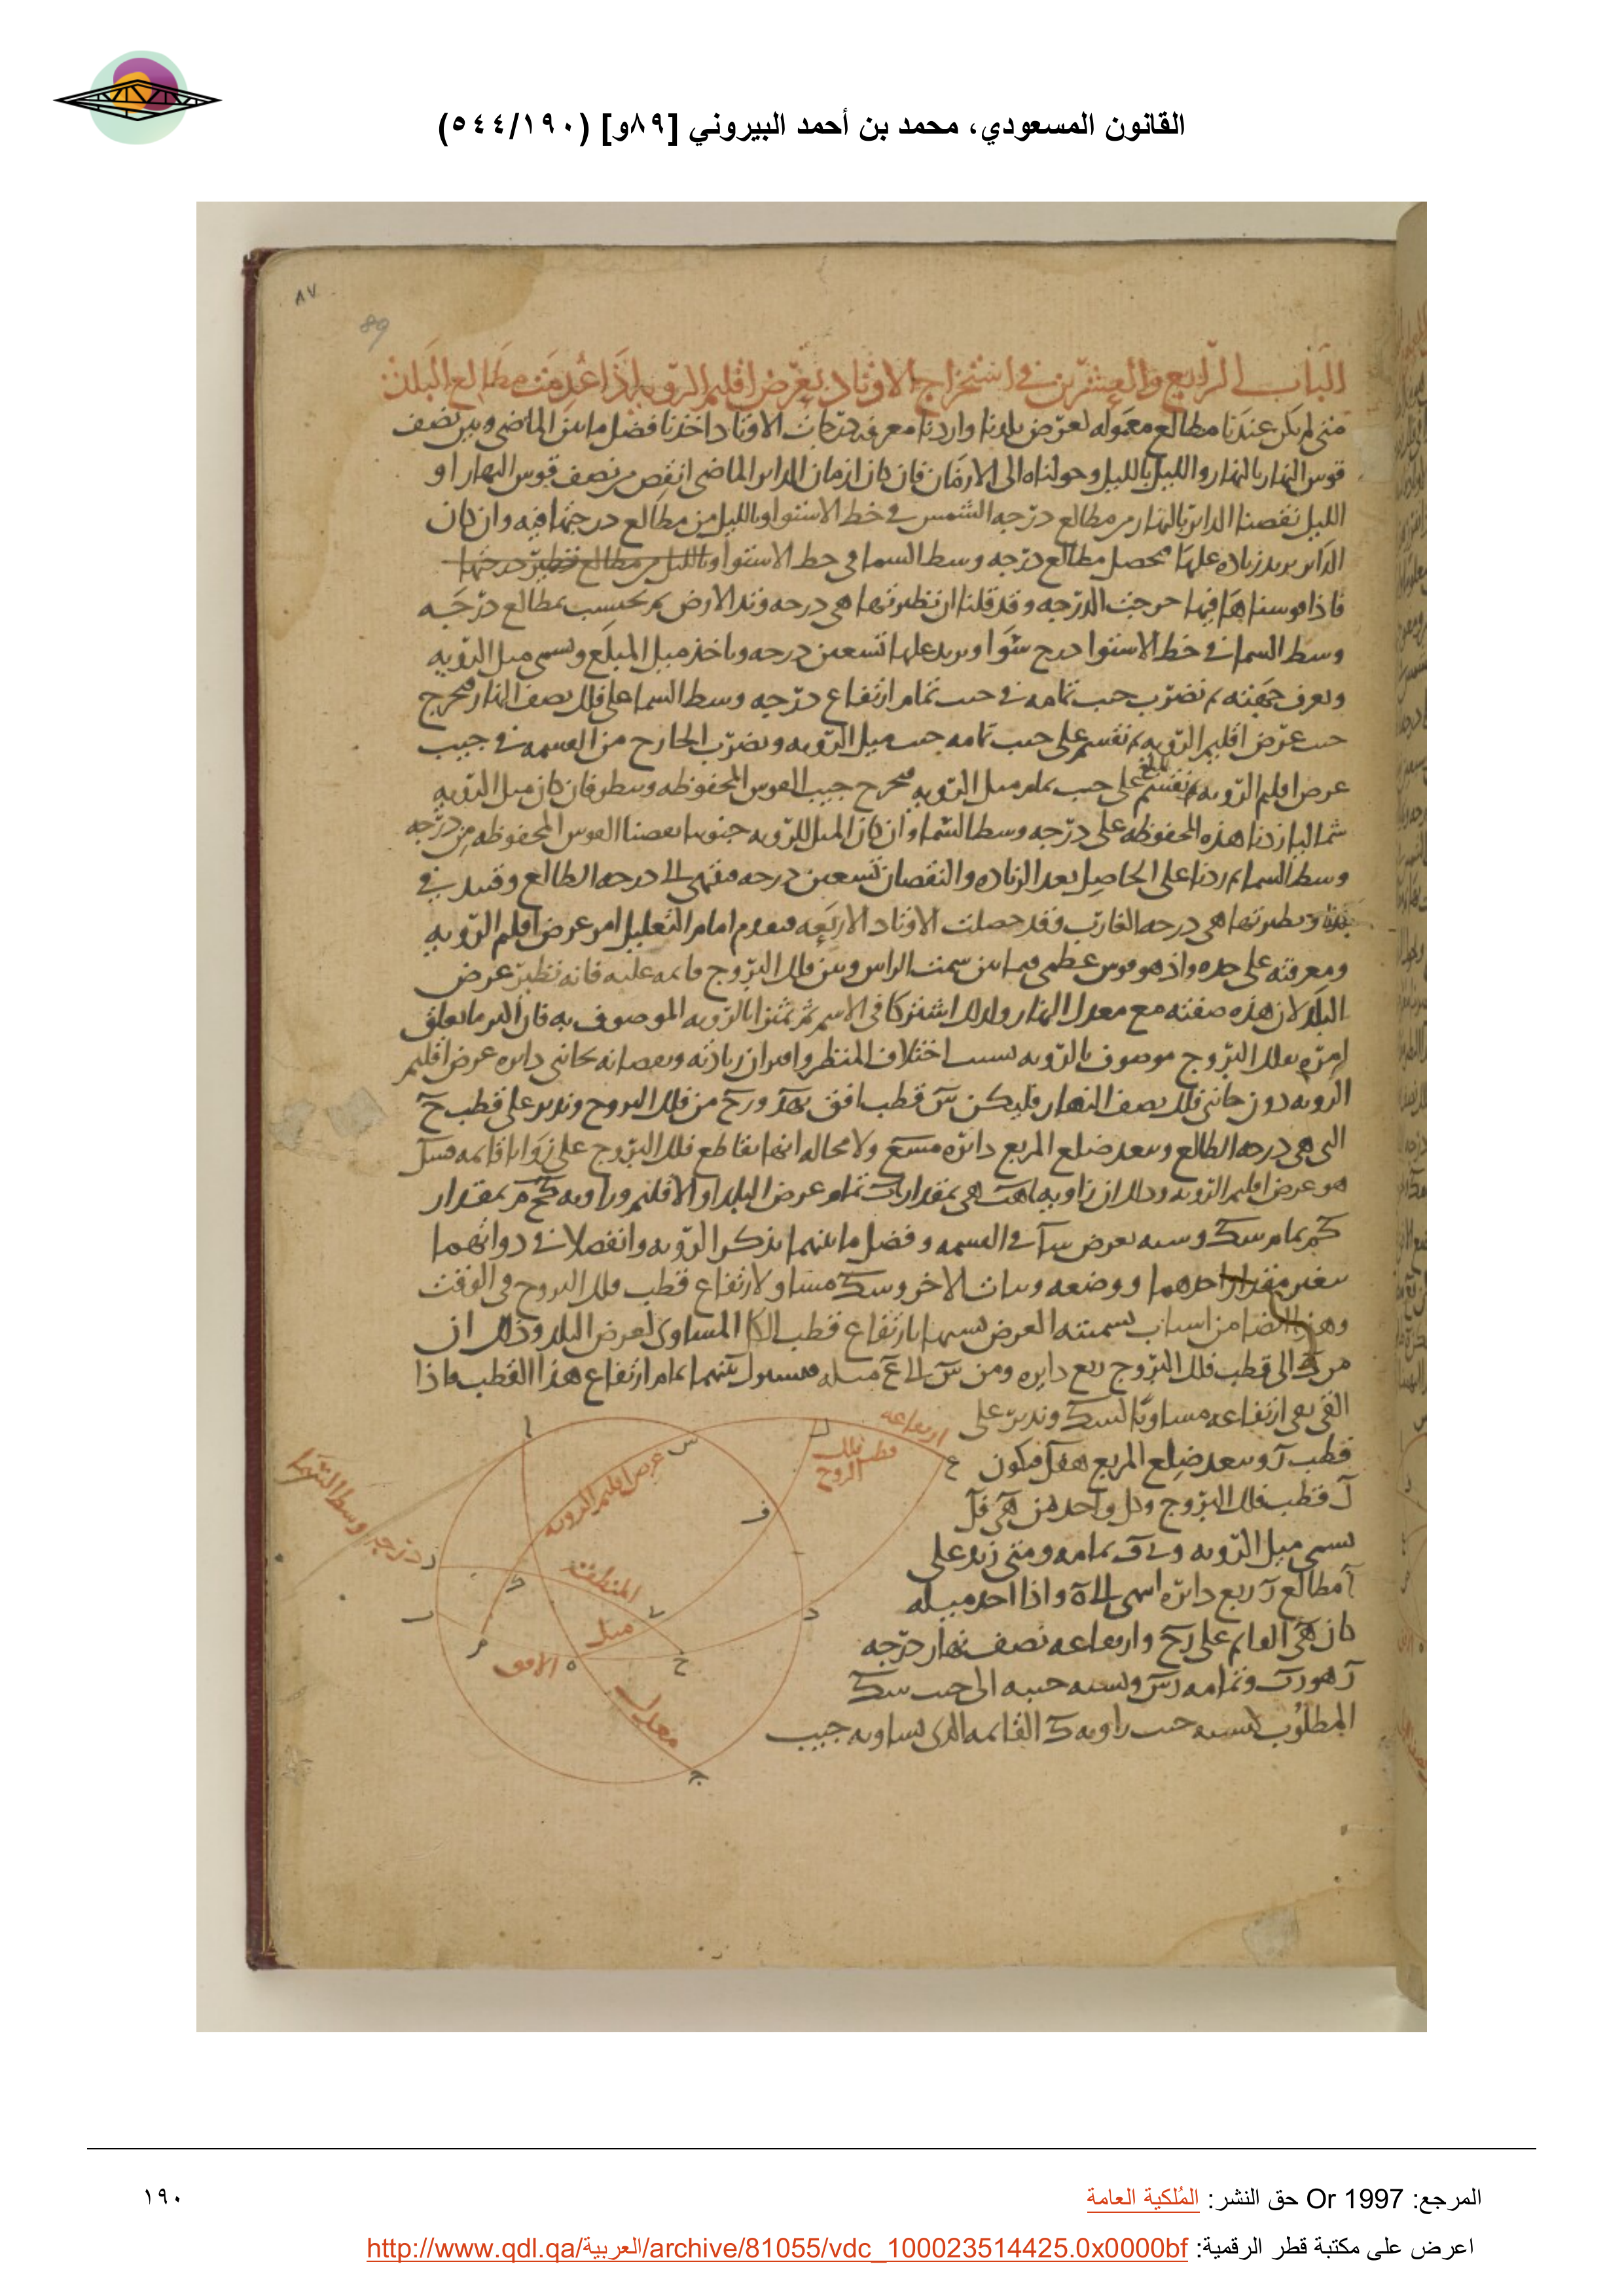 القانون المسعودي، محمد بن أحمد البيروني [٨٩و] (٥٤٤/١٩٠)
٨٧
89
الباب الرابع والعشرين في استخراج الاوتاد بعرض اقليم الرويه اذا عدمت مطالع البلدان
متى لم يكن عندنا مطالع معموله لعرض بلدنا واردنا معرفه درجات الاوتاد اخذنا فضل ما بين الماضي وبين نصف
قوس النهار بالنهار والليل بالليل وحولناه الى الازمان فان كان ازمان الداير الماضي انقص من نصف قوس النهار او
الليل نقصنا الداير بالنهار من مطالع درجه الشمس في خط الاستوا وبالليل من مطالع درجتها فيه وان كان
الداير يريد زياده عليها محصل مطالع درجه وسط السما في خط الاستوا وبالليل من مطالع نظير درجتها
فاذا قوسناها فيها خرجت الدرجه وقد قلنا ان نظيرتها هي درجه وتد الارض ثم نحسب بمطالع درجه
وسط السما في خط الاستوا درج سوا ونزيد عليها تسعين درجه وناخذ ميل المبلغ ونسمى ميل الرويه
ونعرف جهته ثم نضرب جيب تمامه في جيب تمام ارتفاع درجه وسط السما على فلك نصف النهار فيخرج
جيب عرض اقليم الرويه ثم نقسم على جيب تمامه جيب ميل الرويه ونضرب الخارج من القسمه في جيب
عرض اقليم الرويه ثم نقسم المبلغ على جيب تمام ميل الرويه فيخرج جيب القوس المحفوظه وننظر فان كان ميل الرويه
شماليا زدنا هذه المحفوظه على درجه وسط السما وان كان الميل للرويه جنوبيا نقصنا القوس المحفوظه من درجه
وسط السما ثم زدنا على الحاصل بعد الزياده والنقصان تسعين درجه فننتهى الى درجه الطالع وقيد في
ونظيرتها هي درجه الغارب فقد حصلت الاوتاد الاربعه فنقدم امام التعليل امر عرض اقليم الرويه
ومعرفته على حده واذ هو قوس عظمى فيما بين سمت الراس وبين فلك البروج قايمه عليه فانه نظير عرض
البلد لان هذه صفته مع معدل النهار ولذلك اشتركا في الاسم ثم تميزا بالرويه الموصوف به فان اكثر ما يتعلق
امره بفلك البروج موصوف بالرويه بسبب اختلاف المنظر واقتران زيادته ونقصانه بجانبي دايره عرض اقليم
الرويه دون جانبي فلك نصف النهار فليكن س قطب افق بهد ورح من فلك البروج وندير على قطب ح
التي هي درجه الطالع وببعد ضلع المربع دائره مسع ولا محاله انها تقاطع فلك البروج على زوايا قائمه فسك
هو عرض اقليم الرويه وذلك ان زاويه اهب هي بمقدار اب تمام عرض البلد او الاقليم وزاويه كحم بمقدار
كم تمام سك ونسبه بعرض سا في القسمه وفضل ما بينهما بذكر الرويه وانفصلا في ذواتهما
بتغير مقدار احدهما ووضعه وثبات الاخر وسك مساو لارتفاع قطب فلك البروج في الوقت
وهذا ايضا من اسباب تسميته العرض تشبيها بارتفاع قطب الكل المساوى لعرض البلد وذلك ان
من ك الى قطب فلك البروج ربع دايره ومن س الى ع مثله فسك بينهما تمام ارتفاع هذا القطب فاذا
القى بقى ارتفاعه مساويا لسك وندير على
قطب ز وببعد ضلع المربع هفل فيكون
ل قطب فلك البروج وكل واحد من هي فل
يسمى ميل الرويه وي ف تمامه ومتى زيد على
ا مطالع ز ربع دائره انتهى الى ه واذا اخذ ميله
كان هي القايم على زح وارتفاعه نصف نهار درجه
ز هو زب وتمامه زس ونسبه جيبه الى جيب سك
المطلوب كنسبه جيب زاويه ك القائمه الذى يساويه جيب
ارتفاعه
قطب فلك
البروج
عرض اقليم الرويه
درجه وسط السما
المنطقه
ميل
الافق
معدل
ا
س
ل
ع
ف
ز
ك
ب
م
ه
ح
ي
د
ج
المرجع: Or 1997 حق النشر: المُلكية العامة
١٩٠
اعرض على مكتبة قطر الرقمية: http://www.qdl.qa/العربية/archive/81055/vdc_100023514425.0x0000bf